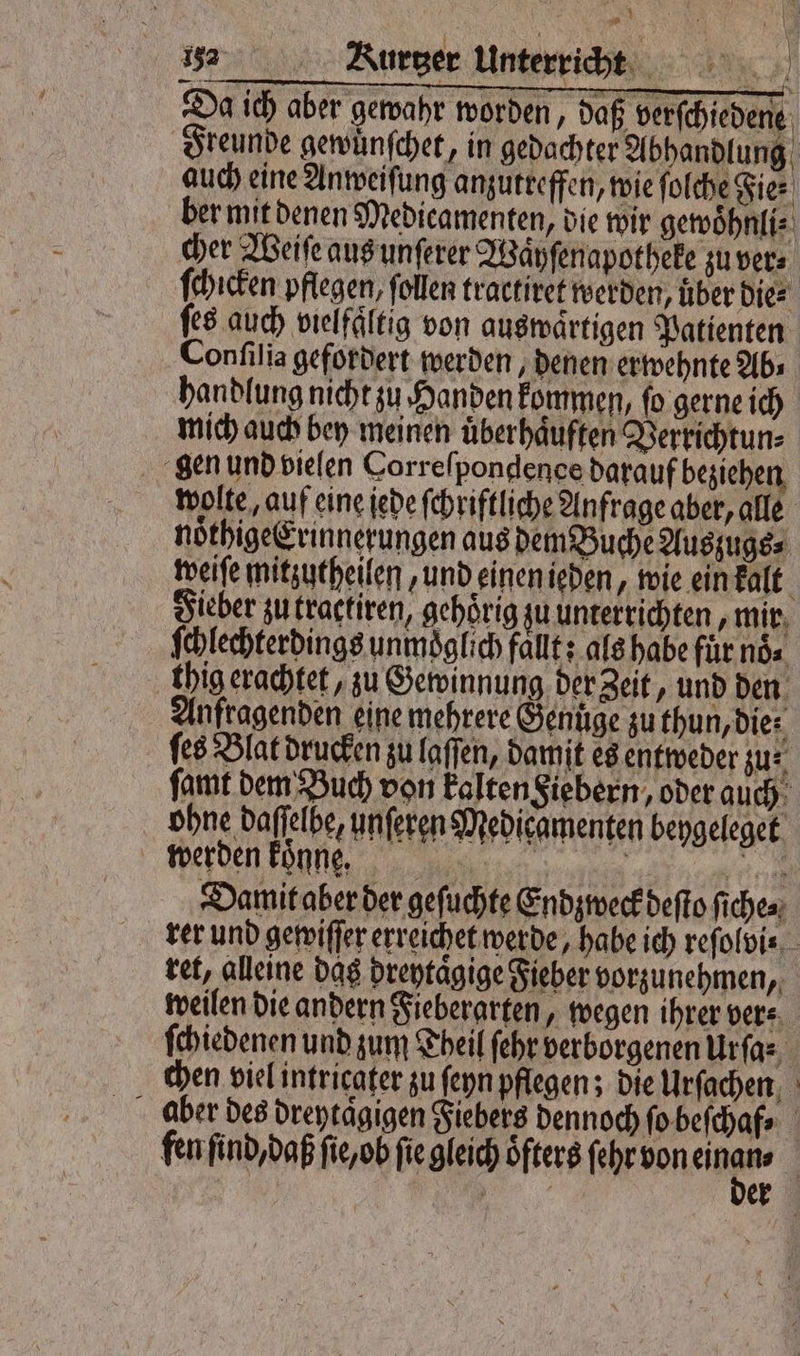 152 Kurtzer Unterricht
Da ich aber gewahr worden, daß verſchiedene
Freunde gewuͤnſchet, in gedachter Abhandlung
auch eine Anweiſung anzutreffen, wie ſolche Fie⸗
ber mit denen Medicamenten, die wir gewoͤhnli⸗
cher Weiſe aus unſerer Waͤyſenapotheke zu ver⸗
ſchicken pflegen, ſollen tractiret werden, uͤber die⸗
ſes auch vielfaͤltig von auswaͤrtigen Patienten
Conſilia gefordert werden, denen erwehnte Ab⸗
handlung nicht zu Handen kommen, ſo gerne ich
mich auch bey meinen uͤberhaͤuften Verrichtun⸗
gen und vielen Correſpondence darauf beziehen
wolte, auf eine iede ſchriftliche Anfrage aber, alle
noͤthige Erinnerungen aus dem Buche Auszugs⸗
weiſe mitzutheilen, und einen ieden, wie ein kalt
Fieber zu tractiren, gehoͤrig zu unterrichten, mir
ſchlechterdings unmoͤglich faͤllt: als habe fuͤr noͤ⸗
thig erachtet, zu Gewinnung der Zeit, und den
Anfragenden eine mehrere Genuͤge zu thun, die⸗
ſes Blat drucken zu laſſen, damit es entweder zu⸗
ſamt dem Buch von kalten Fiebern, oder auch
ohne daſſelbe, unſeren Medicamenten beygeleget
werden koͤnne.
Damit aber der geſuchte Endzweck deſto ſiche⸗
rer und gewiſſer erreichet werde, habe ich reſolvi⸗
ret, alleine das dreytaͤgige Fieber vorzunehmen,
weilen die andern Fieberarten, wegen ihrer ver⸗
ſchiedenen und zum Theil ſehr verborgenen Urſa⸗
chen viel intricater zu ſeyn pflegen; die Urſachen
aber des dreytaͤgigen Fiebers dennoch ſo beſchaf⸗
fen ſind, daß ſie, ob ſie gleich oͤfters ſehr von einan⸗
der